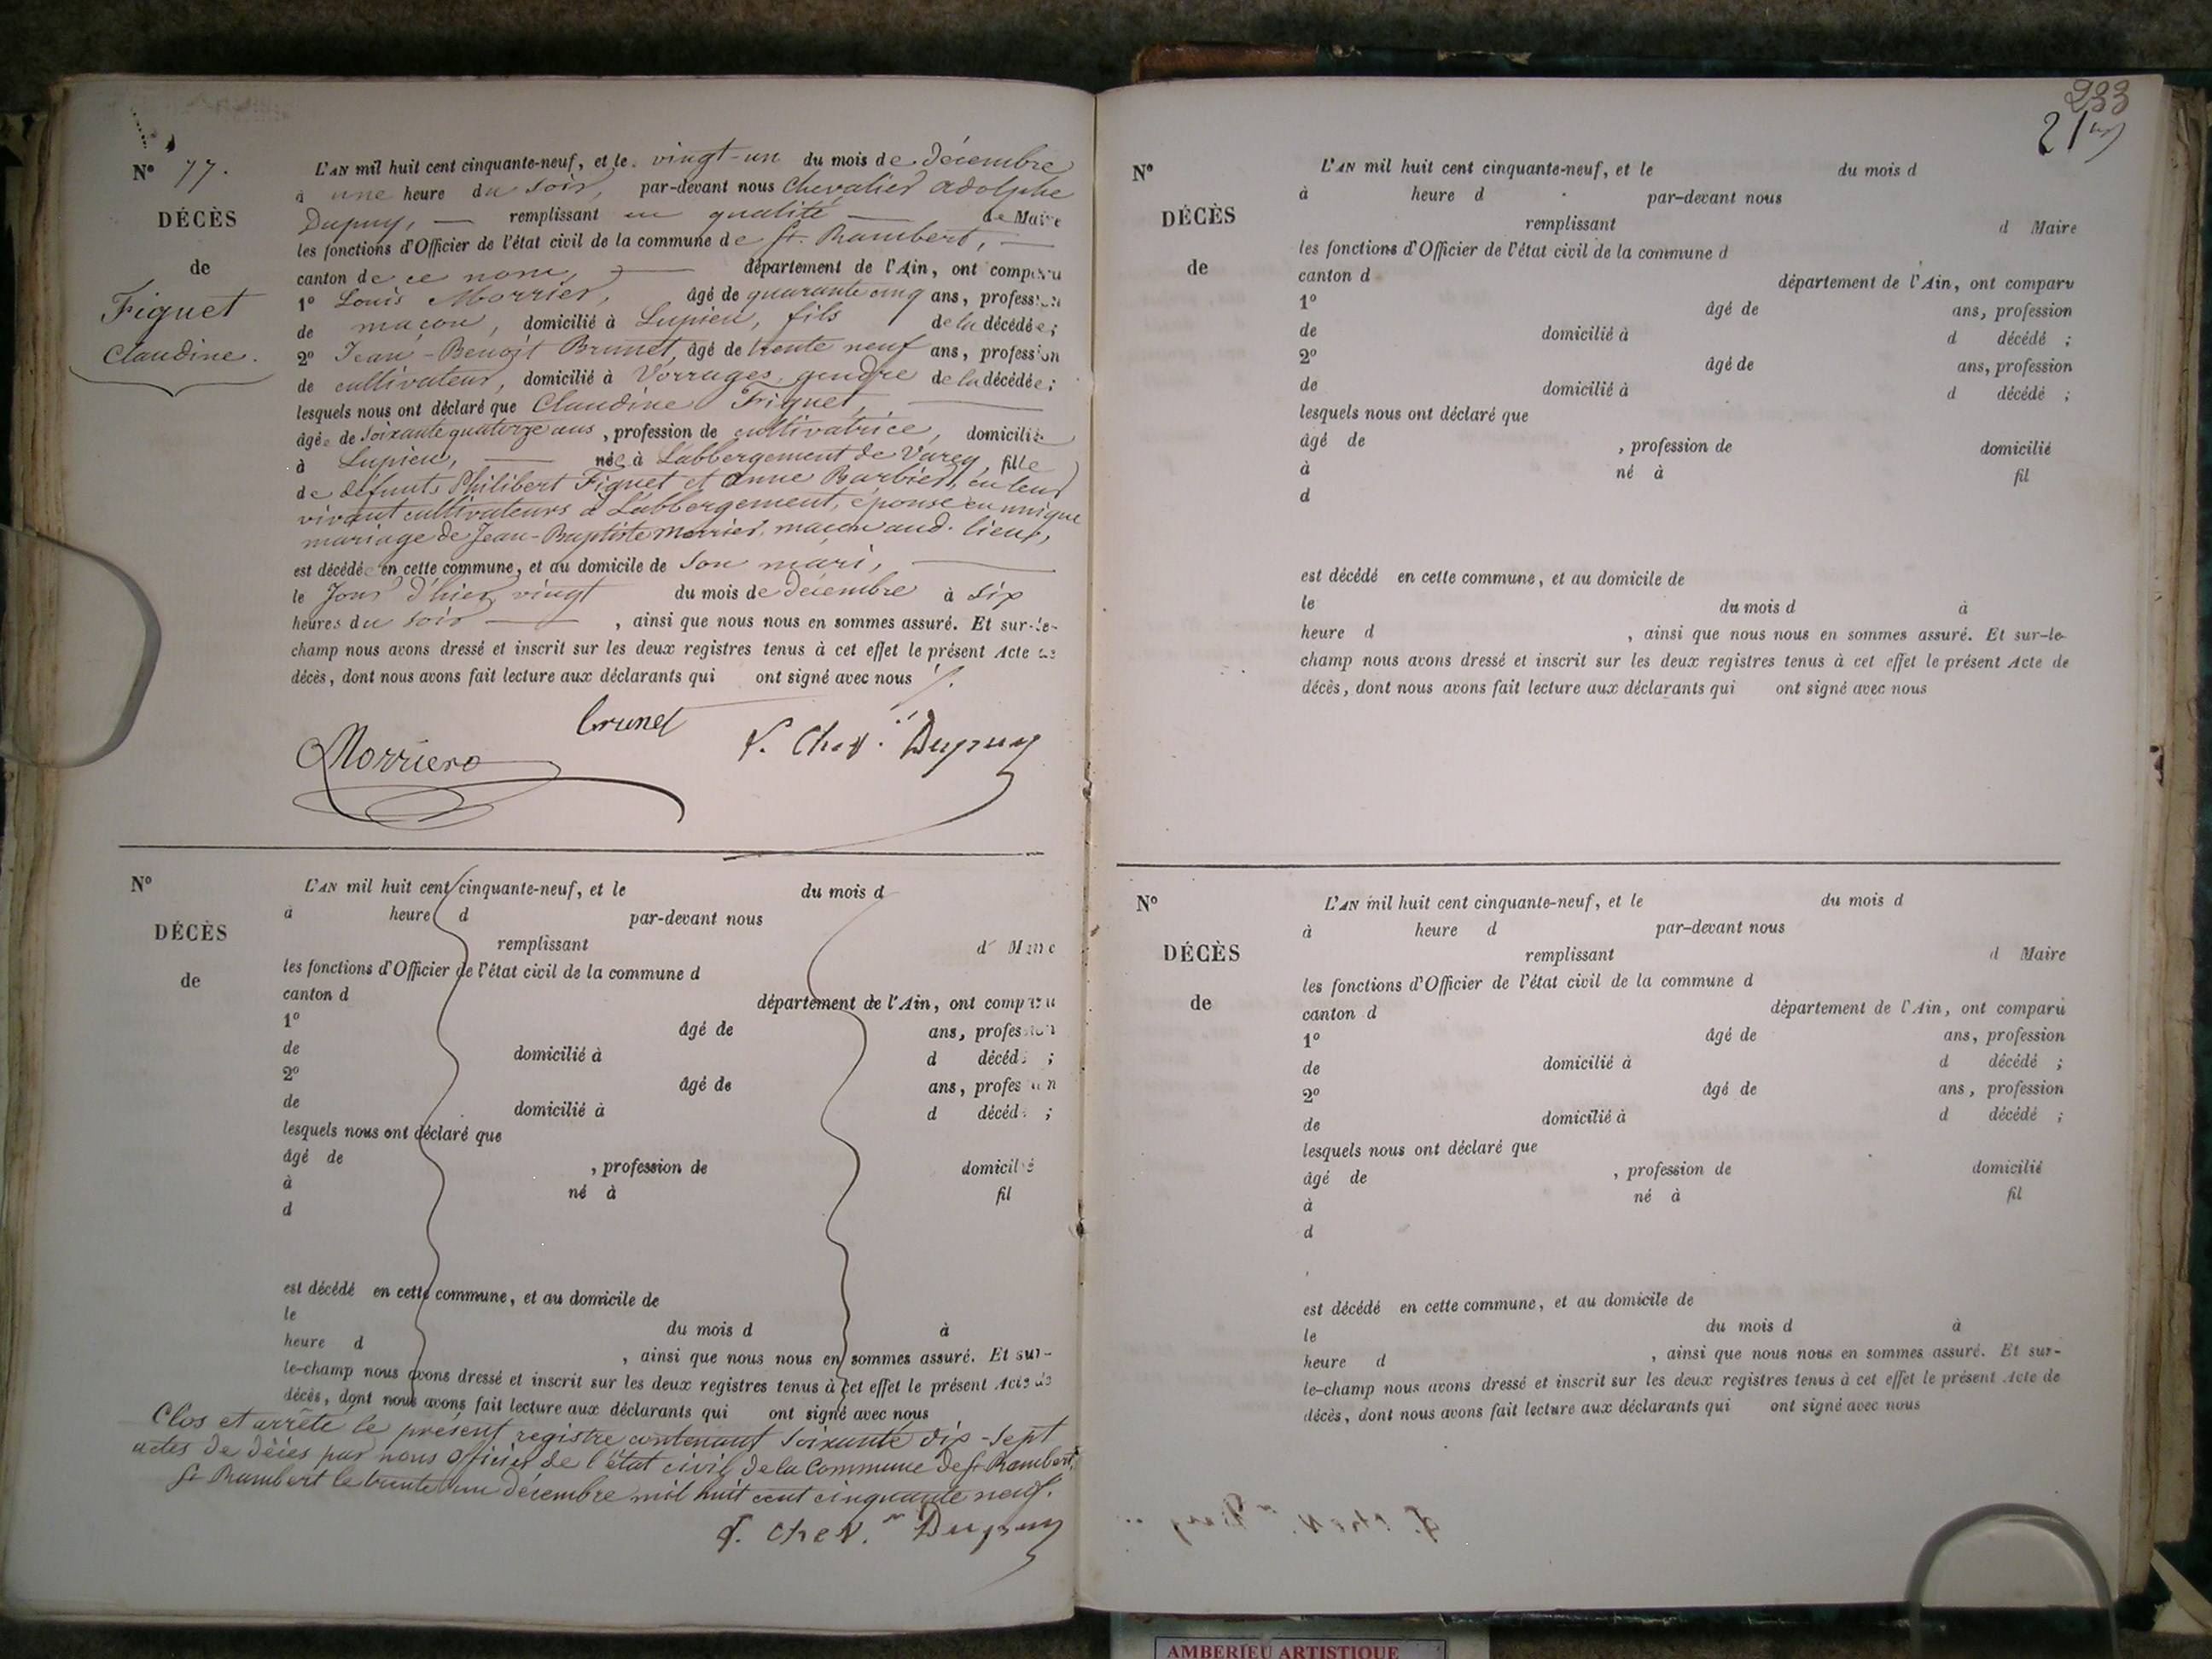 N° 77.
DÉCÈS
de
Figuet
Claudine.
L'AN mil huit cent cinquante-neuf, et le vingt-un du mois de décembre
à une heure du soir, par-devant nous Chevalier Adolphe
Dupuy, — remplissant en qualité — de Maire
les fonctions d'Officier de l'état civil de la commune de St. Rambert, —
canton de ce nom, — département de l'Ain, ont comparu
1° Louis Morrier, âgé de quarante cinq ans, profession
de maçon, domicilié à Lupieu, fils de la décédée;
2° Jean-Benoît Brunet, âgé de trente neuf ans, profession
de cultivateur, domicilié à Vorrages, gendre de la décédée;
lesquels nous ont déclaré que Claudine Figuet, —
âgée de soixante quatorze ans, profession de cultivatrice, domiciliée
à Lupieu, — née à L'abbergement de Varey, fille
de défunts Philibert Figuet et Anne Barbier, en leur
vivant cultivateurs à L'abbergement, épouse en unique
mariage de Jean-Baptiste Morrier, maçon aud. lieu,
est décédée en cette commune, et au domicile de son mari, —
le Jour d'hier vingt du mois de décembre à six
heures du soir — , ainsi que nous nous en sommes assuré. Et sur-le-
champ nous avons dressé et inscrit sur les deux registres tenus à cet effet le présent Acte de
décès, dont nous avons fait lecture aux déclarants qui ont signé avec nous
brunet
Morrier
A. Chev.r Dupuy
N°
DÉCÈS
de
L'AN mil huit cent cinquante-neuf, et le du mois d
à heure d par-devant nous
remplissant d Maire
les fonctions d'Officier de l'état civil de la commune d
canton d département de l'Ain, ont comparu
1° âgé de ans, profession
de domicilié à d décédé ;
2° âgé de ans, profession
de domicilié à d décédé ;
lesquels nous ont déclaré que
âgé de , profession de domicilié
à né à fil
d
est décédé en cette commune, et au domicile de
le du mois d à
heure d , ainsi que nous nous en sommes assuré. Et sur-
le-champ nous avons dressé et inscrit sur les deux registres tenus à cet effet le présent Acte de
décès, dont nous avons fait lecture aux déclarants qui ont signé avec nous
Clos et arrêté le présent registre contenant soixante dix-sept
actes de décès par nous officier de l'état civil de la Commune de St Rambert,
St Rambert le trente un décembre mil huit cent cinquante neuf.
A. Chev.r Dupuy
233
21
N°
DÉCÈS
de
L'AN mil huit cent cinquante-neuf, et le du mois d
à heure d par-devant nous
remplissant d Maire
les fonctions d'Officier de l'état civil de la commune d
canton d département de l'Ain, ont comparu
1° âgé de ans, profession
de domicilié à d décédé ;
2° âgé de ans, profession
de domicilié à d décédé ;
lesquels nous ont déclaré que
âgé de , profession de domicilié
à né à fil
d
est décédé en cette commune, et au domicile de
le du mois d à
heure d , ainsi que nous nous en sommes assuré. Et sur-le-
champ nous avons dressé et inscrit sur les deux registres tenus à cet effet le présent Acte de
décès, dont nous avons fait lecture aux déclarants qui ont signé avec nous
N°
DÉCÈS
de
L'AN mil huit cent cinquante-neuf, et le du mois d
à heure d par-devant nous
remplissant d Maire
les fonctions d'Officier de l'état civil de la commune d
canton d département de l'Ain, ont comparu
1° âgé de ans, profession
de domicilié à d décédé ;
2° âgé de ans, profession
de domicilié à d décédé ;
lesquels nous ont déclaré que
âgé de , profession de domicilié
à né à fil
d
est décédé en cette commune, et au domicile de
le du mois d à
heure d , ainsi que nous nous en sommes assuré. Et sur-
le-champ nous avons dressé et inscrit sur les deux registres tenus à cet effet le présent Acte de
décès, dont nous avons fait lecture aux déclarants qui ont signé avec nous
AMBERIEU ARTISTIQUE